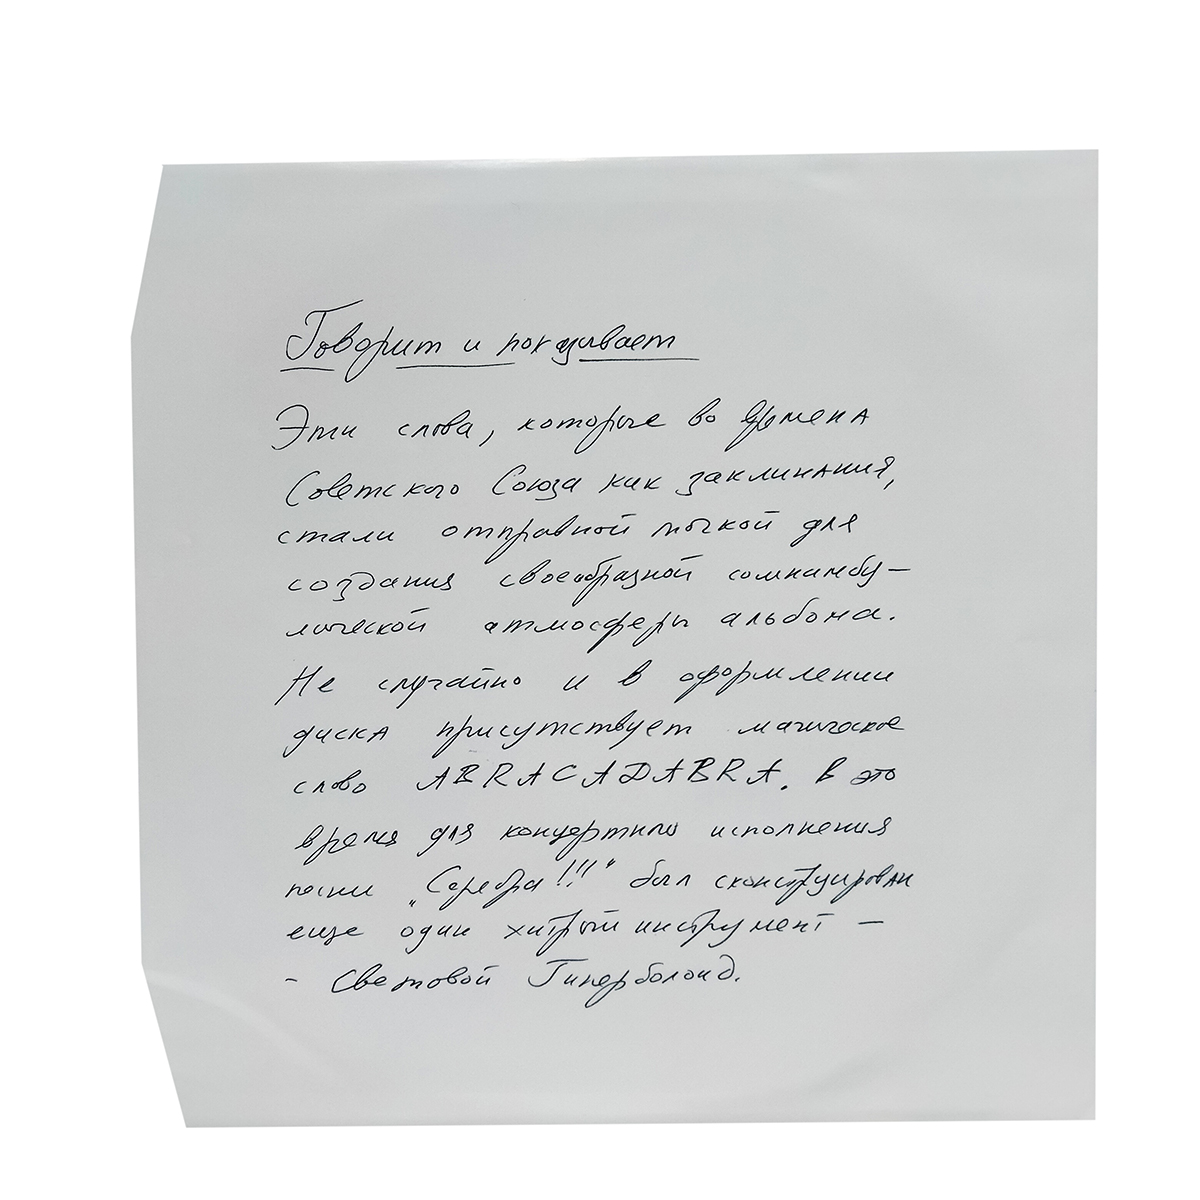 Говорит и показывает
Эти слова, которые во времена
Советского Союза как заклинания,
стали отправной точкой для
создания своеобразной сомнамбу-
лической атмосферы альбома.
Не случайно и в оформлении
диска присутствует магическое
слово ABRACADABRA. В это
время для концертного исполнения
песни „Серебра!!!" был сконструирован
еще один хитрый инструмент -
- Световой Гиперболоид.